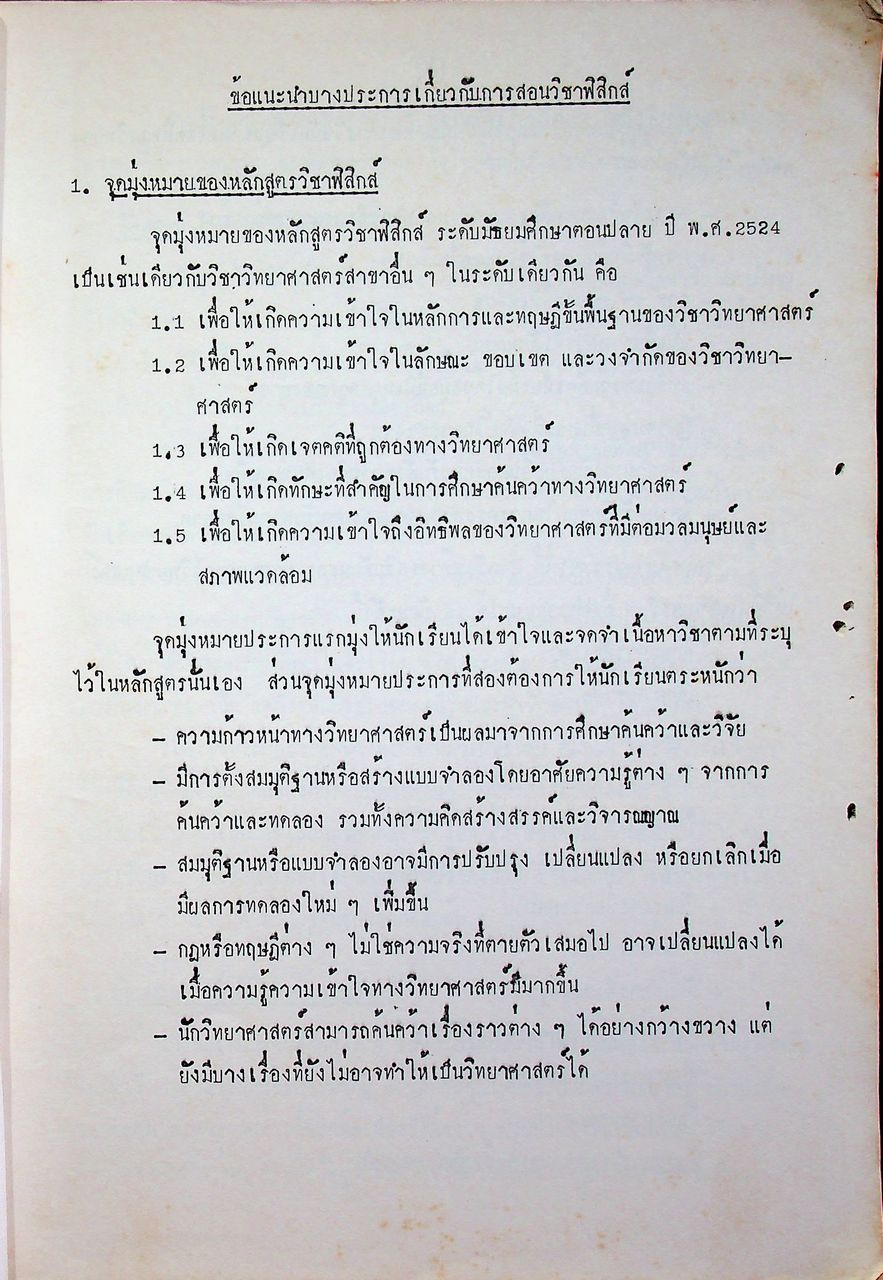 ข้อแนะนำบางประการเกี่ยวกับการสอนวิชาฟิสิกส์
1. จุดมุ่งหมายของหลักสูตรวิชาฟิสิกส์
จุดมุ่งหมายของหลักสูตรวิชาฟิสิกส์ ระดับมัธยมศึกษาตอนปลาย ปี พ.ศ.2524
เป็นเช่นเดียวกับวิชาวิทยาศาสตร์สาขาอื่น ๆ ในระดับเดียวกัน คือ
1.1 เพื่อให้เกิดความเข้าใจในหลักการและทฤษฎีขั้นพื้นฐานของวิชาวิทยาศาสตร์
1.2 เพื่อให้เกิดความเข้าใจในลักษณะ ขอบเขต และวงจำกัดของวิชาวิทยา-
ศาสตร์
1.3 เพื่อให้เกิดเจตคติที่ถูกต้องทางวิทยาศาสตร์
1.4 เพื่อให้เกิดทักษะที่สำคัญในการศึกษาค้นคว้าทางวิทยาศาสตร์
1.5 เพื่อให้เกิดความเข้าใจถึงอิทธิพลของวิทยาศาสตร์ที่มีต่อมวลมนุษย์และ
สภาพแวดล้อม
จุดมุ่งหมายประการแรกมุ่งให้นักเรียนได้เข้าใจและจดจำเนื้อหาวิชาตามที่ระบุ
ไว้ในหลักสูตรนั่นเอง ส่วนจุดมุ่งหมายประการที่สองต้องการให้นักเรียนตระหนักว่า
- ความก้าวหน้าทางวิทยาศาสตร์เป็นผลมาจากการศึกษาค้นคว้าและวิจัย
- มีการตั้งสมมุติฐานหรือสร้างแบบจำลองโดยอาศัยความรู้ต่าง ๆ จากการ
ค้นคว้าและทดลอง รวมทั้งความคิดสร้างสรรค์และวิจารณญาณ
- สมมุติฐานหรือแบบจำลองอาจมีการปรับปรุง เปลี่ยนแปลง หรือยกเลิกเมื่อ
มีผลการทดลองใหม่ ๆ เพิ่มขึ้น
- กฎหรือทฤษฎีต่าง ๆ ไม่ใช่ความจริงที่ตายตัวเสมอไป อาจเปลี่ยนแปลงได้
เมื่อความรู้ความเข้าใจทางวิทยาศาสตร์มีมากขึ้น
- นักวิทยาศาสตร์สามารถค้นคว้าเรื่องราวต่าง ๆ ได้อย่างกว้างขวาง แต่
ยังมีบางเรื่องที่ยังไม่อาจทำให้เป็นวิทยาศาสตร์ได้